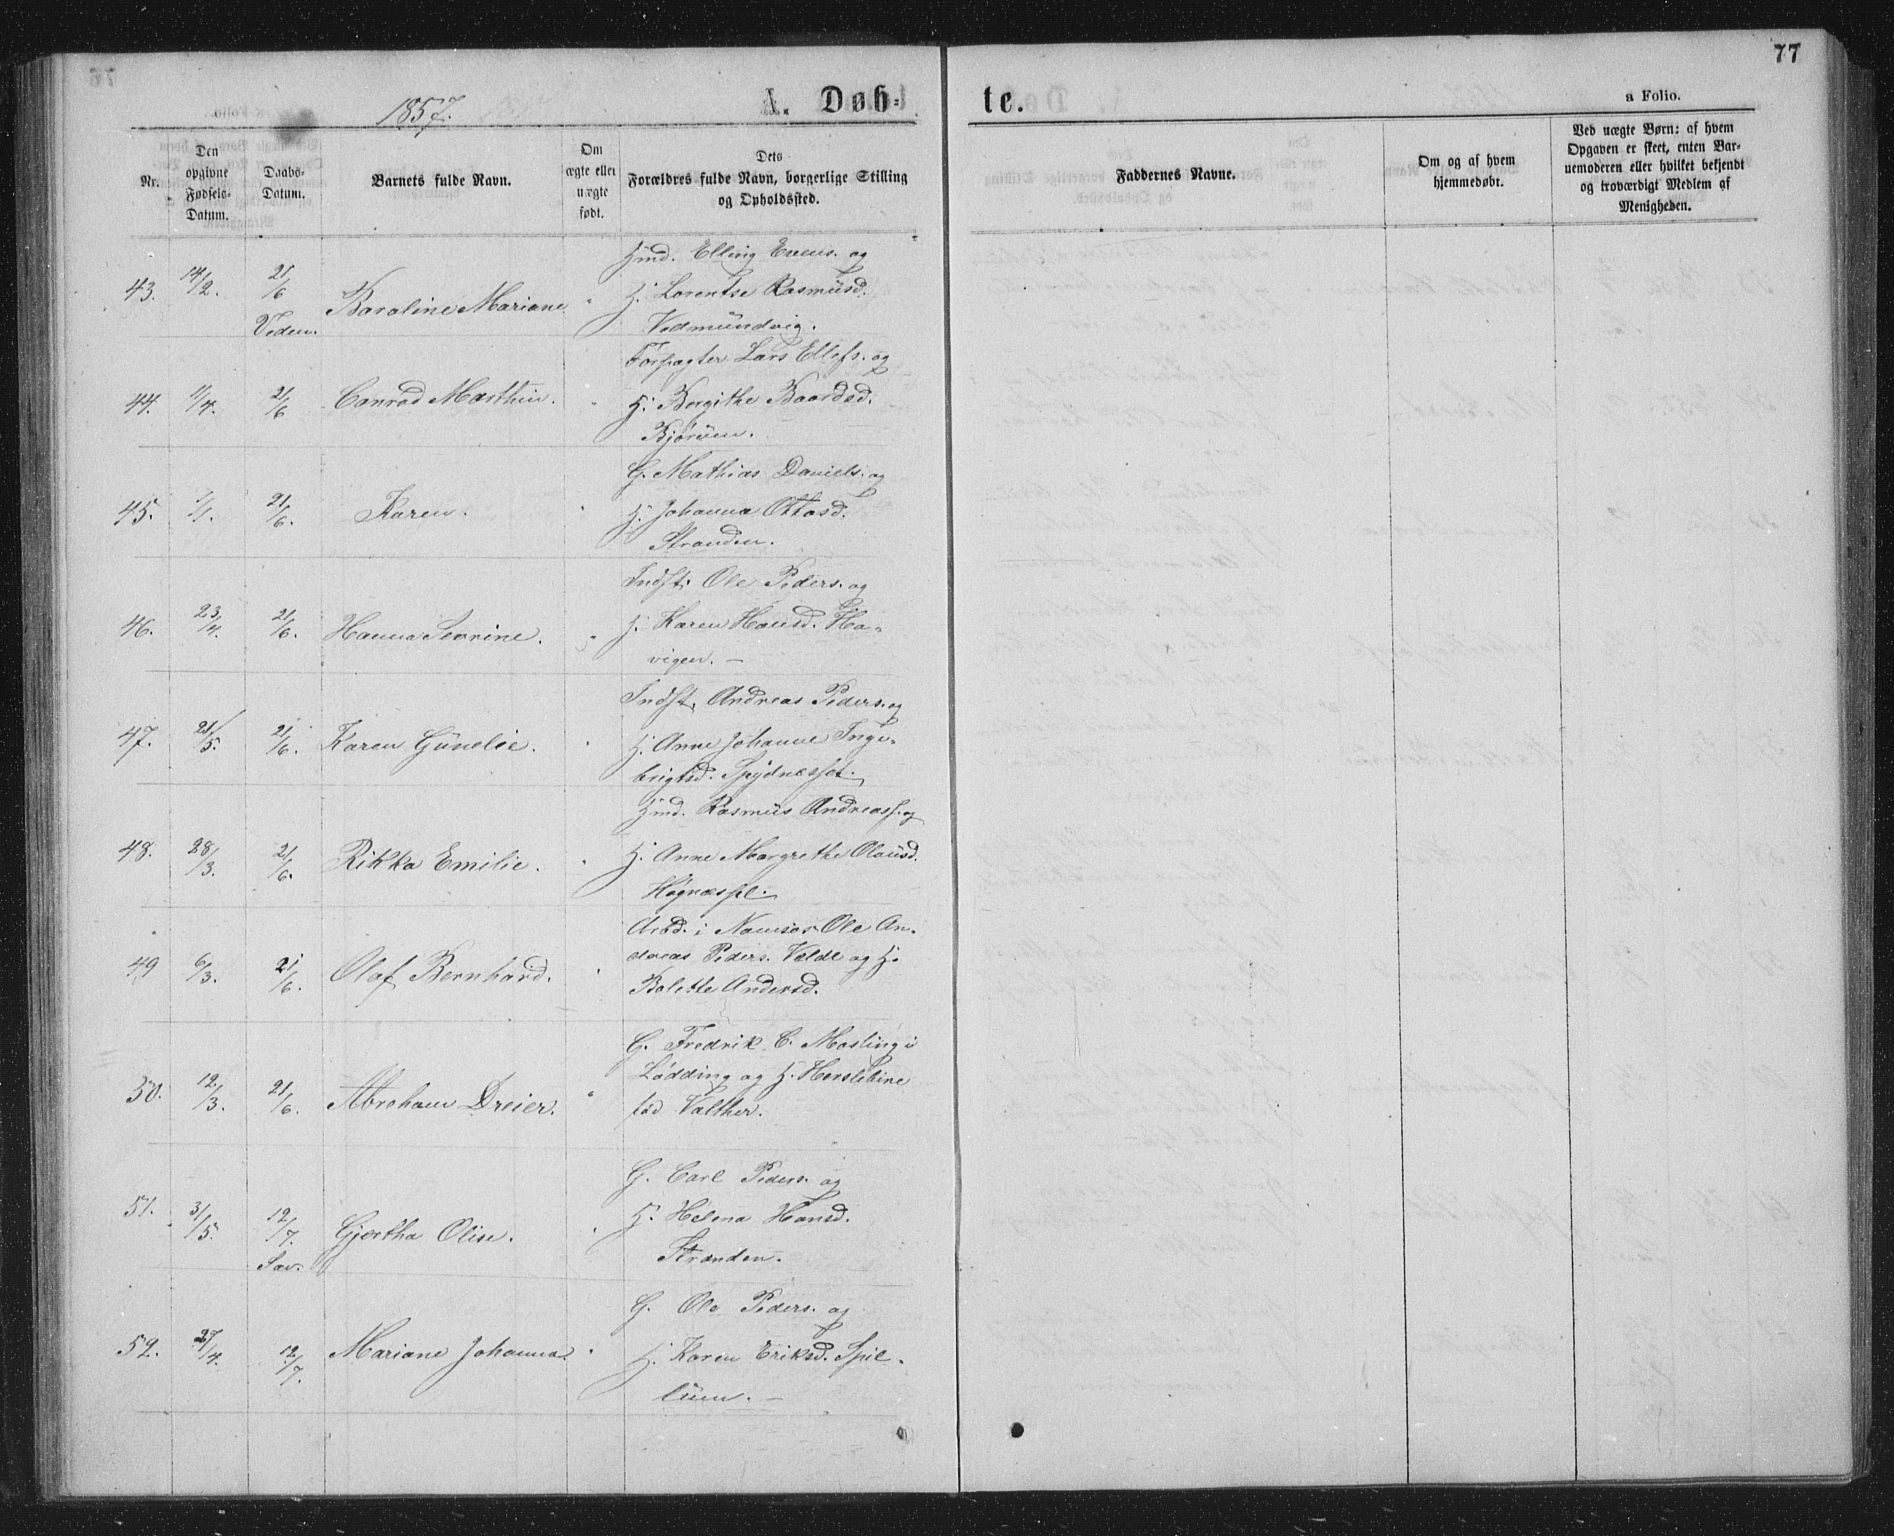 77
1857.
A. Døb-
te.
a Folio.
Nr.
Den
opgivne
Fødsels-
Datum.
Daabs-
Datum.
Barnets fulde Navn.
Om
ægte eller
uægte
født.
Dets
Forældres fulde Navn, borgerlige Stilling
og Opholdssted.
Faddernes Navne.
Om og af hvem
hjemmedøbt.
Ved uægte Børn: af hvem
Opgaven er skeet, enten Bar-
nemoderen eller hvilket bekjendt
og troværdigt Medlem af
Menigheden.
43. 14/2. 21/6 Karoline Mariane. " Hmd. Elling Evens. og
H. Lorentse Rasmusd.
Vedmundvig.
44. 1/4. 21/6 Conrad Marthin. " Forpagter Lars Ellefs. og
H. Bergithe Baardsd.
Bjørum.
45. 1/1. 21/6. Karen. " G. Mathias Daniels. og
H. Johanna Ottosd.
Stranden.
46. 23/4. 21/6. Hanna Sevrine. " Indst. Ole Peders. og
H. Karen Hansd. Ha-
vigen. —
47. 21/5. 21/6. Karen Gunelie. " Indst. Andreas Peders. og
H. Anne Johanne Inge-
brigtsd. Spydnæsset.
48. 28/3. 21/6. Rikka Emilie. " Hmd. Rasmus Andreass. og
H. Anne Margrethe Olausd.
Høgnæspl.
49 6/3. 21/6. Olaf Bernhard. " Arbd. i Namsos Ole An-
dreas Peders. Vælde og H.
Bolette Andersd.
50. 12/3. 21/6. Abraham Dreier. " G. Fredrik C. Mosling i
Lødding og H. Herslebine
fød Valther.
51. 31/5. 12/7. Gjertha Olise. " G. Carl Peders. og
Sav.
H. Helena Hansd.
Stranden.
52. 27/4. 12/7. Mariane Johanna. " G. Ole Peders. og
H. Karen Eriksd. Spil-
lum. —